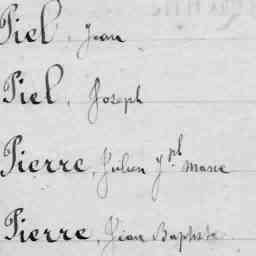 Piel, Jean
Piel, Joseph
Pierre, Julien Jph Marie
Pierre, Jean Baptiste